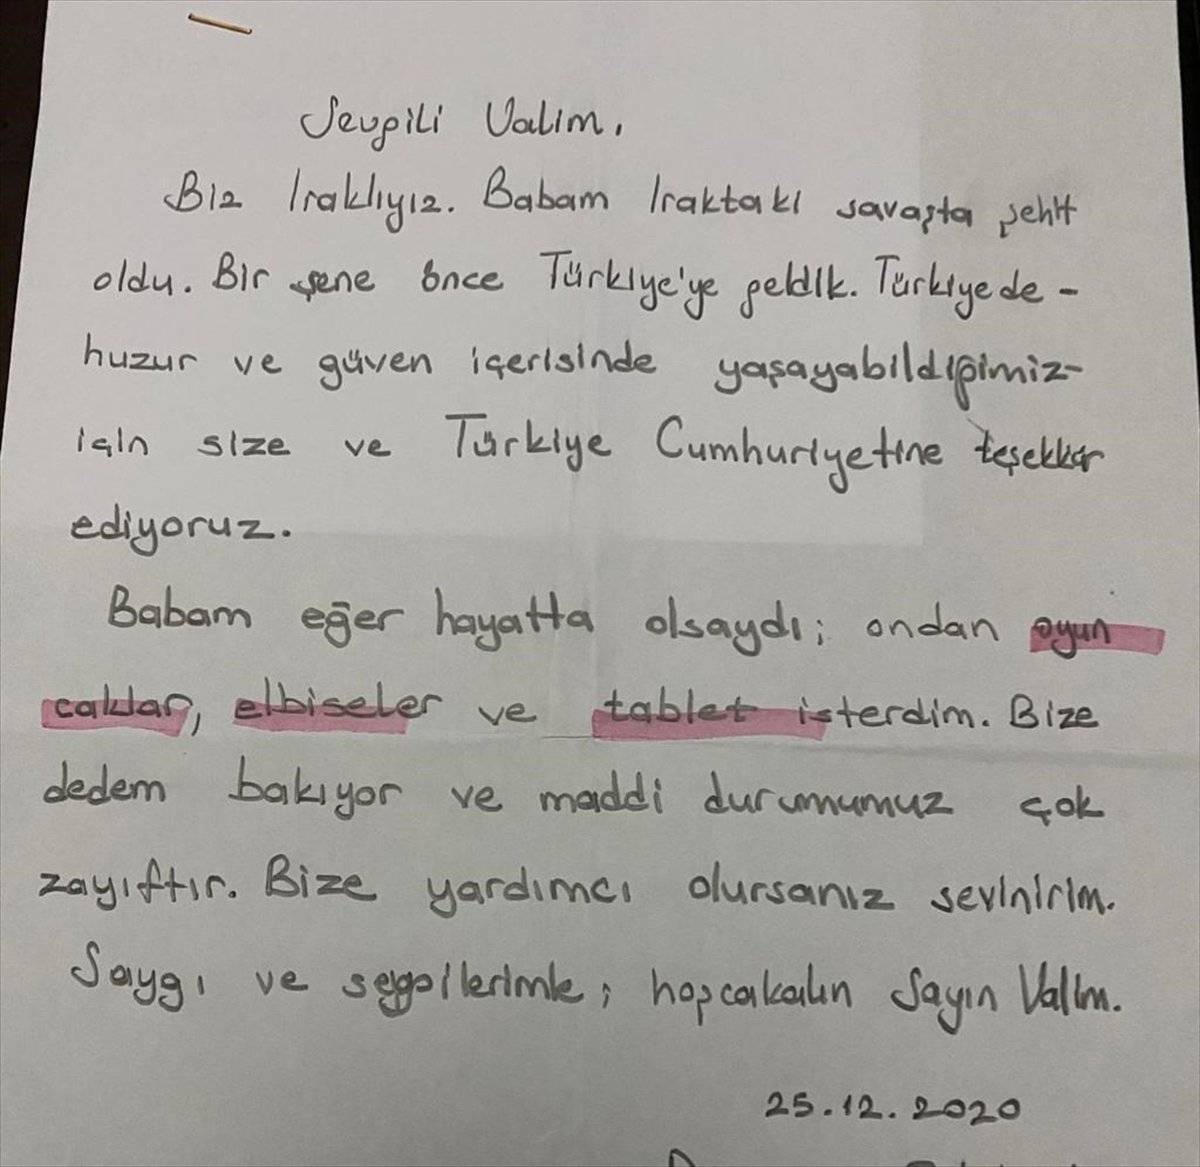 Sevgili Valim,
Biz Iraklıyız. Babam Iraktaki savaşta şehit
oldu. Bir şene önce Türkiye'ye geldik. Türkiyede -
huzur ve güven içerisinde yaşayabildiğimiz-
için size ve Türkiye Cumhuriyetine teşekkür
ediyoruz.
Babam eğer hayatta olsaydı; ondan oyun
caklar, elbiseler ve tablet isterdim. Bize
dedem bakıyor ve maddi durumumuz çok
zayıftır. Bize yardımcı olursanız sevinirim.
Saygı ve sevgilerimle; hoşcakalın Sayın Valim.
25.12.2020